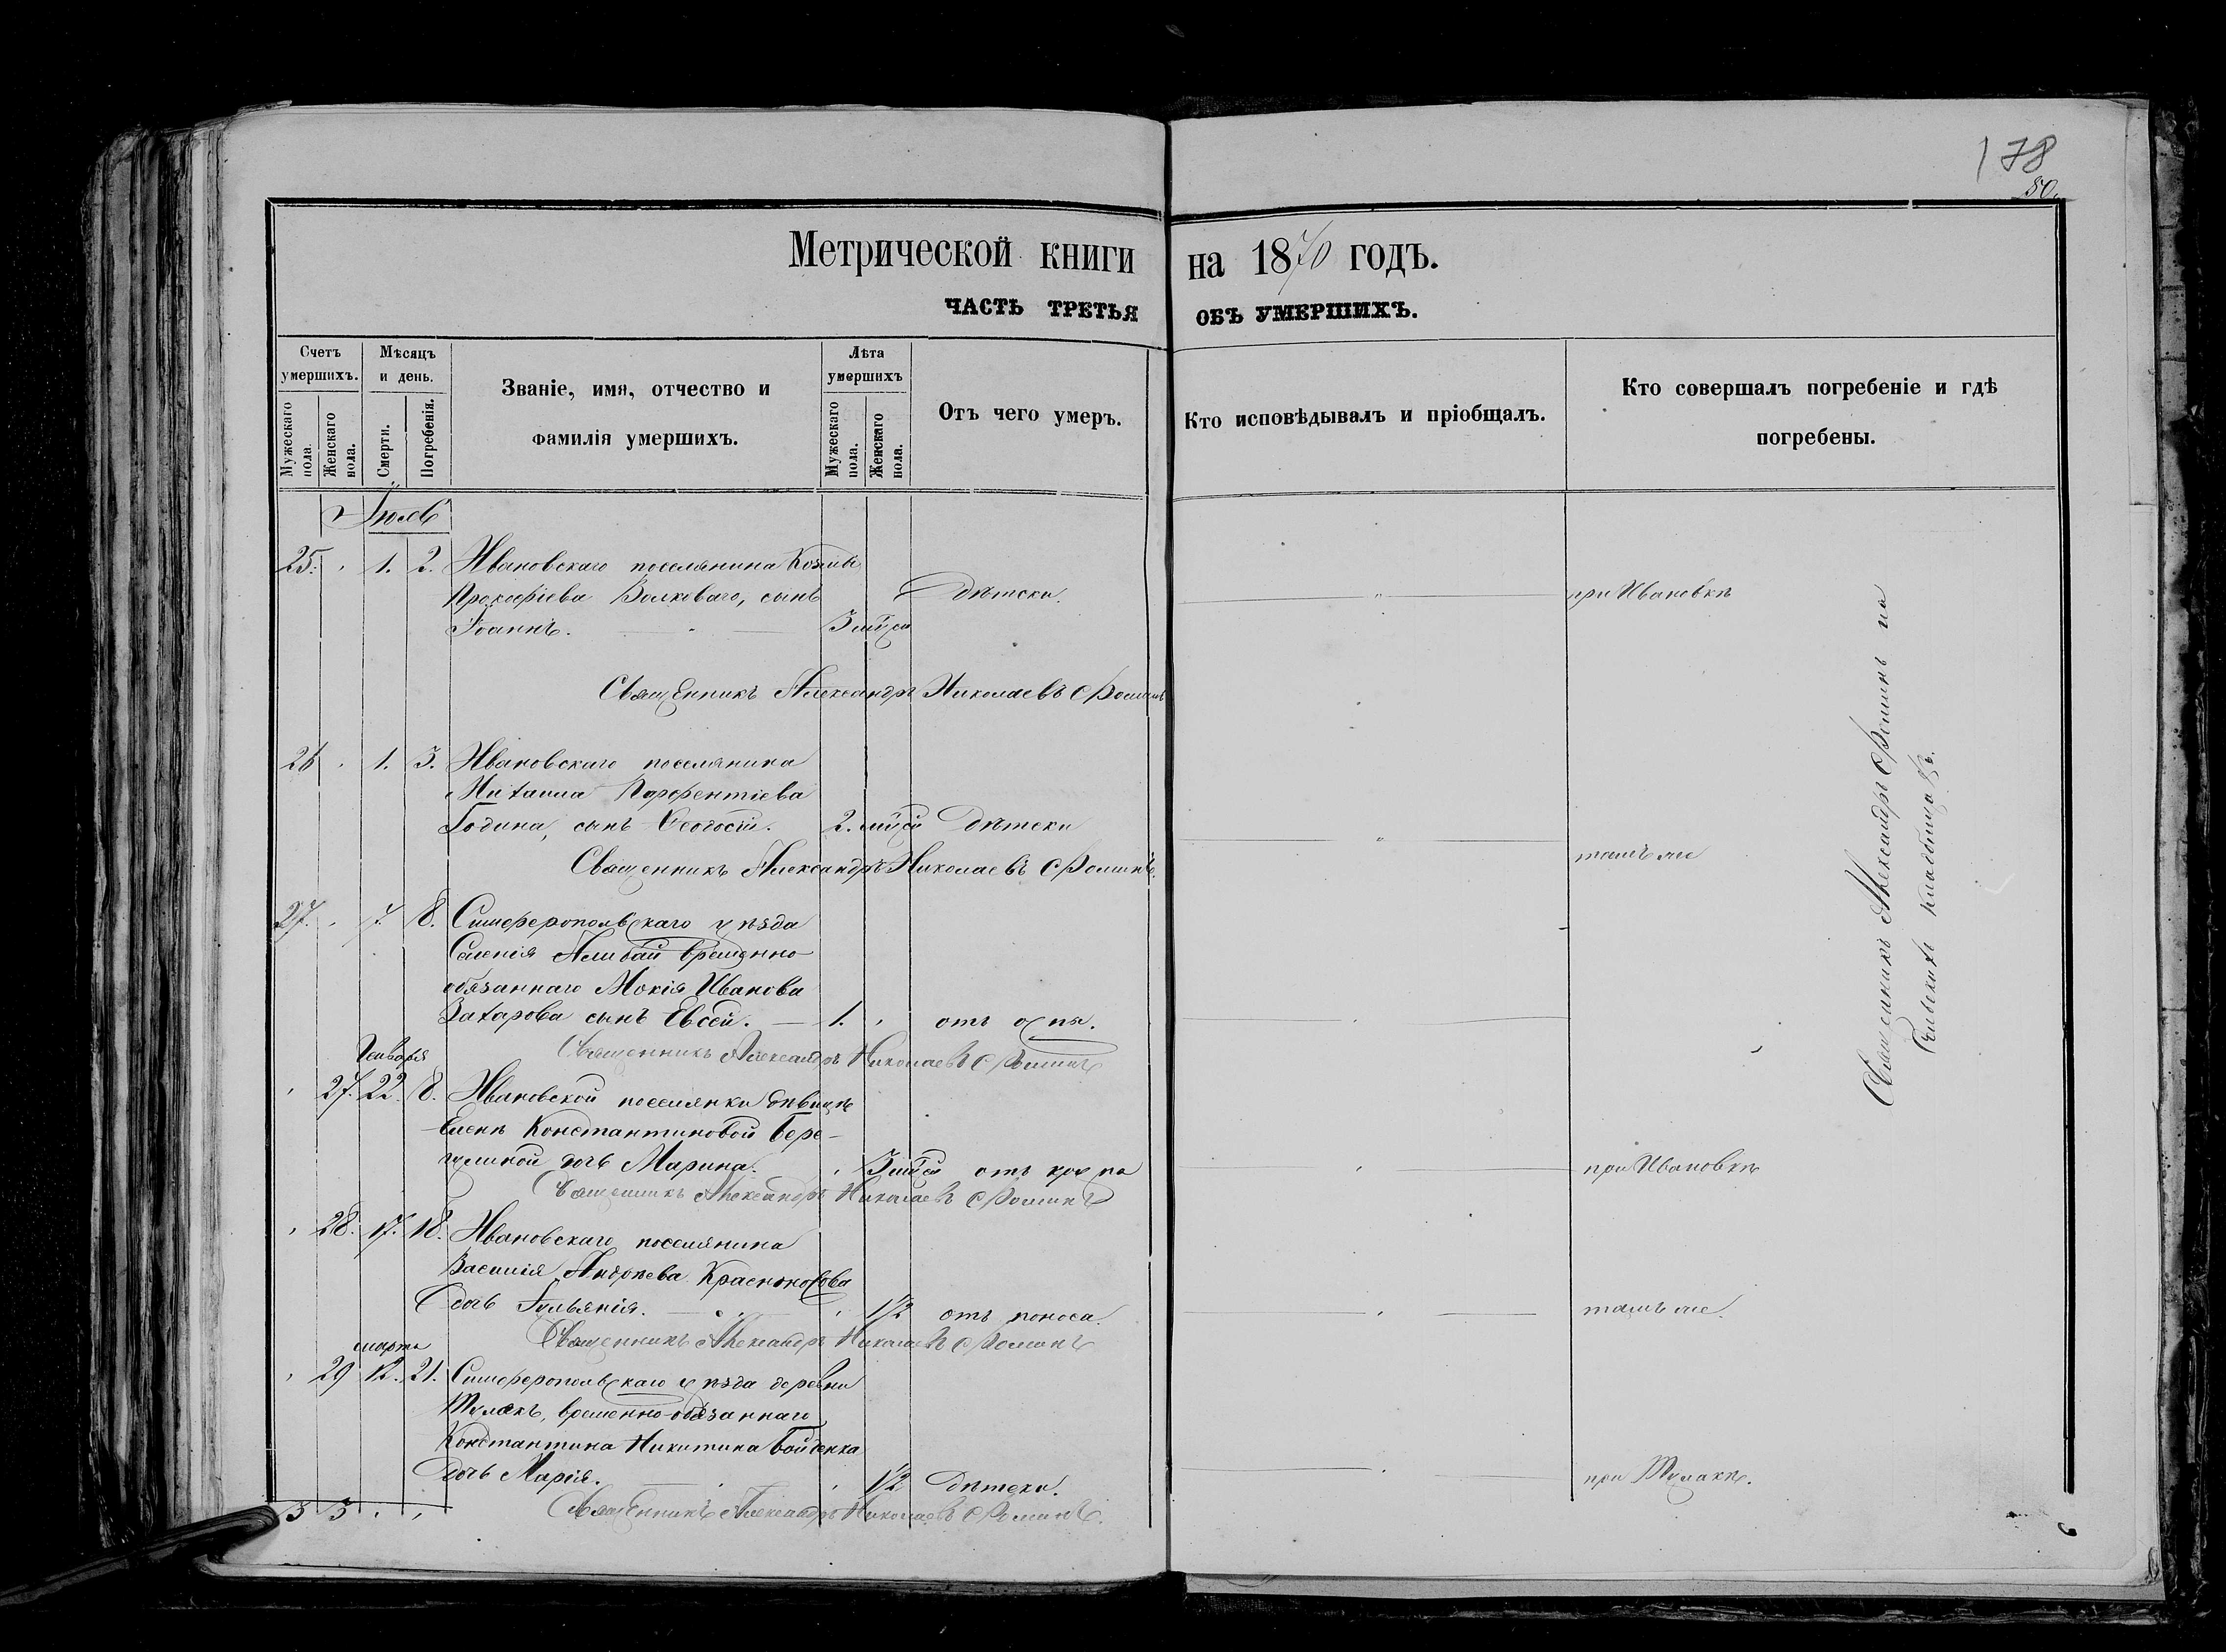 178
50.
Метрической книги на 1870 годъ.
ЧАСТЬ ТРЕТЬЯ ОБЪ УМЕРШИХЪ.
Счетъ умершихъ.
Мужескаго пола
Женскаго пола.
Мѣсяцъ и день.
Смерти.
Погребенія.
Званіе, имя, отчество и
фамилія умершихъ.
Лѣта умершихъ
Мужескаго пола.
Женскаго пола.
Отъ чего умеръ.
Кто исповѣдывалъ и пріобщалъ.
Кто совершалъ погребеніе и гдѣ
погребены.
Іюль
25. 1. 2. Ивановскаго поселянина Козмы
Прокофіева Волковаго, сынъ дѣтски. при Ивановкѣ
Іоаннъ. 3 мѣся
Священникъ Александръ Николаевъ Фоминъ
26 1. 3. Ивановскаго поселянина
Михаила Парфентіева
Година, сынъ Ѳеодосій. 2. мѣся дѣтски
тамъ же
Священникъ Александръ Николаевъ Фоминъ.
27. 7. 8. Симферопольскаго уѣзда
Селенія Алибай временно-
обязаннаго Мокія Иванова
Захарова сынъ Евсей. 1. отъ оспы.
Священникъ Александръ Николаевъ Фоминъ
Генваря
27. 22. 8. Ивановской поселянки дѣвицѣ
Еленѣ Константиновой Бере-
дочь Марина. 3 мѣся отъ крупа при Ивановкѣ
Священникъ Александръ Николаевъ Фоминъ
28. 17. 18. Ивановскаго поселянина
Василія Андреева Красноносова
дочь Іульянія. 1/2 отъ поноса. тамъ же.
Священникъ Александръ Николаевъ Фоминъ
марта
29 12. 21. Симферопольскаго уѣзда деревни
Тулакъ, временно-обязаннаго
Константина Никитина Бойденка
дочь Марія. 1/2 дѣтски. при Тулакѣ.
Священникъ Александръ Николаевъ Фоминъ.
3 3
Священникъ Александръ Фоминъ на
кладбищахъ.